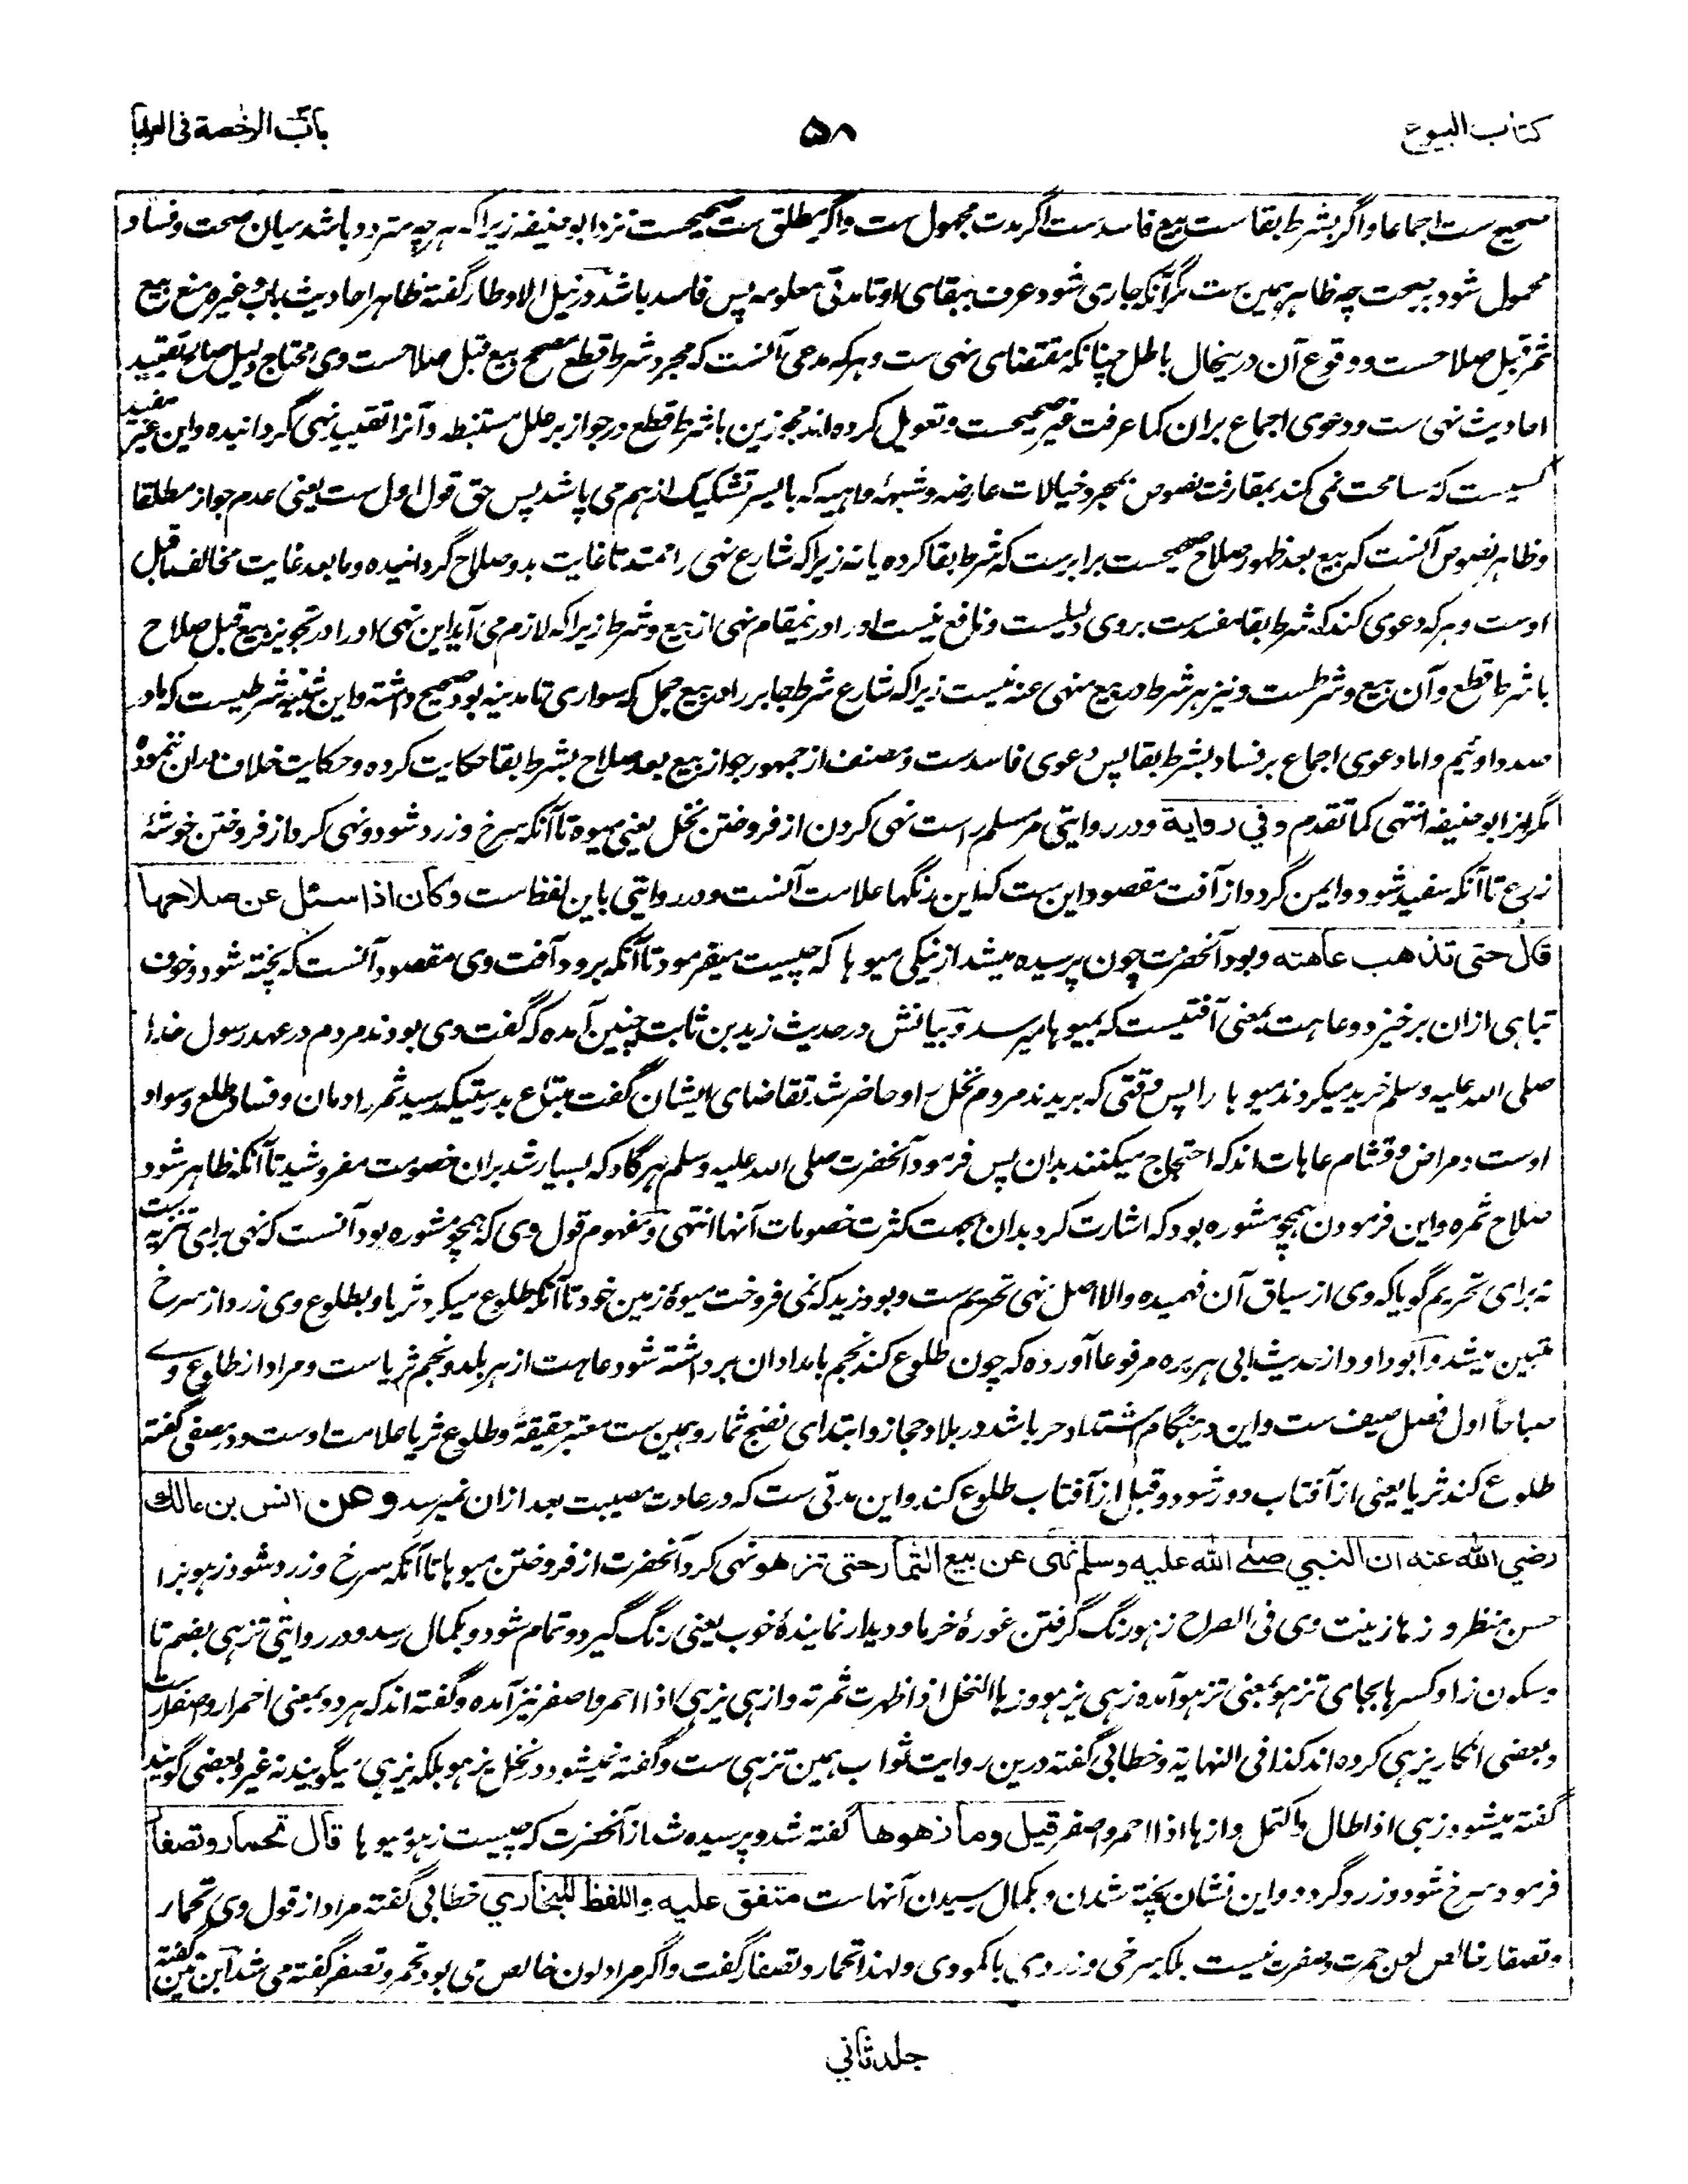 کتاب البیوع
۵۸
باب الرخصة فی العرایا
صحیح ست اجماعا و اگر بشرط بقا ست بیع فاسد ست اگر مدت مجهول ست و اگر مطلق ست صحیحست نزد ابو حنیفه زیراکه هرچه متردد باشد میان صحت و فساد
محمول شود بر صحت چه ظاهر همین ست مگر آنکه جاری شود عرف ببقای او تا مدتی معلومه پس فاسد باشد در نیل الاوطار گفته ظاهر احادیث باب و غیره منع بیع
ثمر قبل صلاحست و وقوع آن درینحال باطل چنانکه مقتضای نهی ست و هرکه مدعی آنست که مجرد شرط قطع مصحح بیع قبل صلاحست وی محتاج دلیل صالح تقیید
احادیث نهی ست و دعوی اجماع بران کما عرفت غیر صحیحست و تعویل کرده اند مجوزین با شرط قطع در جواز بر علل مستنبطه و آنرا تقیید نهی گردانیده و این غیر مفید
کسیست که مسامحت نمی کند بمفارقت نصوص بمجرد خیالات عارضه و شبهٔ واهیه که بایسر تشکیک از هم می پاشد پس حق قول اول ست یعنی عدم جواز مطلقا
و ظاهر نصوص آنست که بیع بعد ظهور صلاح صحیحست برابرست که شرط بقا کرده یا نه زیراکه شارع نهی را ممتد تا غایت بدو صلاح گردانیده و ما بعد غایت مخالف ماقبل
اوست و هرکه دعوی کند که شرط بقا مفسدست بروی دلیلست و نافع نیست او را درینمقام نهی از بیع و شرط زیراکه لازم می آید این نهی او را در تجویز بیع قبل صلاح
با شرط قطع و آن بیع و شرطست و نیز هر شرط در بیع منهی عنه نیست زیراکه شارع شرط جابر را در بیع جمل که سواری تا مدینه بود صحیح داشته و این شبیه شرطیست که ما در
صدد اوئیم و اما دعوی اجماع بر فساد بشرط بقا پس دعوی فاسدست و مصنف از جمهور جواز بیع بعد صلاح بشرط بقا حکایت کرده و حکایت خلاف دران ننموده
مگر از ابو حنیفه انتهی کما تقدم و فی روایة و در روایتی مر مسلم راست نهی کردن از فروختن نخل یعنی میوه تا آنکه سرخ و زرد شود و نهی کرد از فروختن خوشهٔ
زرع تا آنکه سفید شود و ایمن گردد از آفت مقصود این ست که این رنگها علامت آنست و در روایتی باین لفظ ست و کان اذا سئل عن صلاحها
قال حتی تذهب عاهته و بود آنحضرت چون پرسیده میشد از نیکی میوها که چیست میفرمود تا آنکه برود آفت وی مقصود آنست که پخته شود و خوف
تباهی ازان برخیزد و عاهت بمعنی آفتیست که بمیوها میرسد و بیانش در حدیث زید بن ثابت چنین آمده که گفت وی بودند مردم در عهد رسول خدا
صلی الله علیه وسلم خرید میکردند میوها را پس وقتی که بریدند مردم نخل را و حاضر شد تقاضای ایشان گفت مبتاع بدرستیکه رسید ثمر را دمان و فساد طلع و سواد
اوست و مراض و قشام عاهات اند که احتجاج میکنند بدان پس فرمود آنحضرت صلی الله علیه وسلم هرگاه که بسیار شد بران خصومت مفروشید تا آنکه ظاهر شود
صلاح ثمره و این فرمودن همچو مشوره بود که اشارت کرد بدان بجهت کثرت خصومات آنها انتهی و مفهوم قول وی که همچو مشوره بود آنست که نهی برای تنزیه ست
نه برای تحریم گویا که وی از سیاق آن فهمیده و الا اصل نهی تحریم ست و بود زید که نمی فروخت میوهٔ زمین خود تا آنکه طلوع میکرد ثریا و بطلوع وی زرد از سرخ
متبین میشد و ابو داود از حدیث ابی هریره مرفوعا آورده که چون طلوع کند نجم بامدادان برداشته شود عاهت از هر بلد و نجم ثریا ست و مراد از طلوع وے
صباحاً اول فصل صیف ست و این در هنگام اشتداد حر باشد در بلاد حجاز و ابتدای نضج ثمار و همین ست معتبر حقیقةً و طلوع ثریا علامت اوست و در مصفی گفته
طلوع کند ثریا یعنی از آفتاب دور شود و قبل از آفتاب طلوع کند و این مدتی ست که در عادت مصیبت بعد ازان نمیرسد وعن انس بن مالك
رضی الله عنه ان النبي صلے الله علیه وسلم نهی عن بیع الثمار حتی تزهو نهی کرد آنحضرت از فروختن میوها تا آنکه سرخ و زرد شود زهو بزا
حسن منظر و زها زینت وی فی الصراح زهو رنگ گرفتن غورهٔ خرما و دیدار نمایندهٔ خوب یعنی رنگ گیرد و تمام شود و بکمال رسد و در روایتی تزهی بضم تا
و سکون زا و کسر ها بجای تزهو بمعنی تزهو آمده زهی یزهو و زها النخل اذا ظهرت ثمرته و ازهی یزهی اذا احمر و اصفر نیز آمده و گفته اند که هر دو بمعنی احمرار و اصفرارست
و بعضی انکار یزهی کرده اند کذا فی النهایة و خطابی گفته درین روایت ثواب همین تزهی ست و گفته نمیشود در نخل یزهو بلکه یزهی میگویند نه غیر و بعضی گویند
گفته میشود زهی اذا طال و اکتمل و ازها اذا احمر و اصفر قیل وما زهوها گفته شد و پرسیده شد از آنحضرت که چیست زهو میوها قال تحمار وتصفار
فرمود سرخ شود و زرد گردد و این نشان پخته شدن و بکمال رسیدن آنهاست متفق علیه واللفظ للبخاري خطابی گفته مراد از قول وی تحمار
و تصفار خالص لون حمرت و صفرت نیست بلکه سرخی و زردی با کمودی و لهذا تحمار و تصفار گفت و اگر مراد لون خالص می بود تحمر و تصفر گفته می شد ابن تین گفته
جلد ثاني